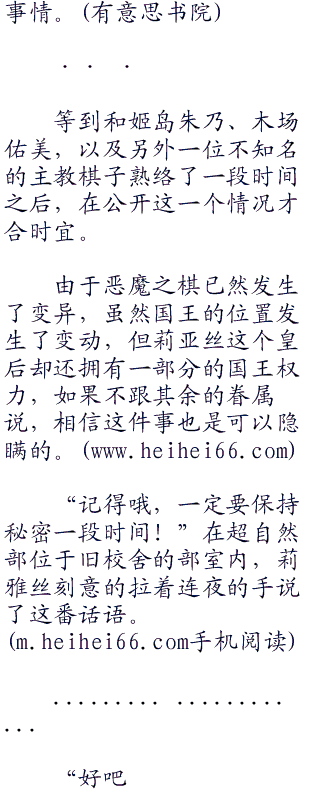 事情。(有意思书院)
. . .
等到和姬岛朱乃、木场
佑美，以及另外一位不知名
的主教棋子熟络了一段时间
之后，在公开这一个情况才
合时宜。
由于恶魔之棋已然发生
了变异，虽然国王的位置发
生了变动，但莉亚丝这个皇
后却还拥有一部分的国王权
力，如果不跟其余的眷属
说，相信这件事也是可以隐
瞒的。(www.heihei66.com)
“记得哦，一定要保持
秘密一段时间！”在超自然
部位于旧校舍的部室内，莉
雅丝刻意的拉着连夜的手说
了这番话语。
(m.heihei66.com手机阅读)
......... .........
...
“好吧